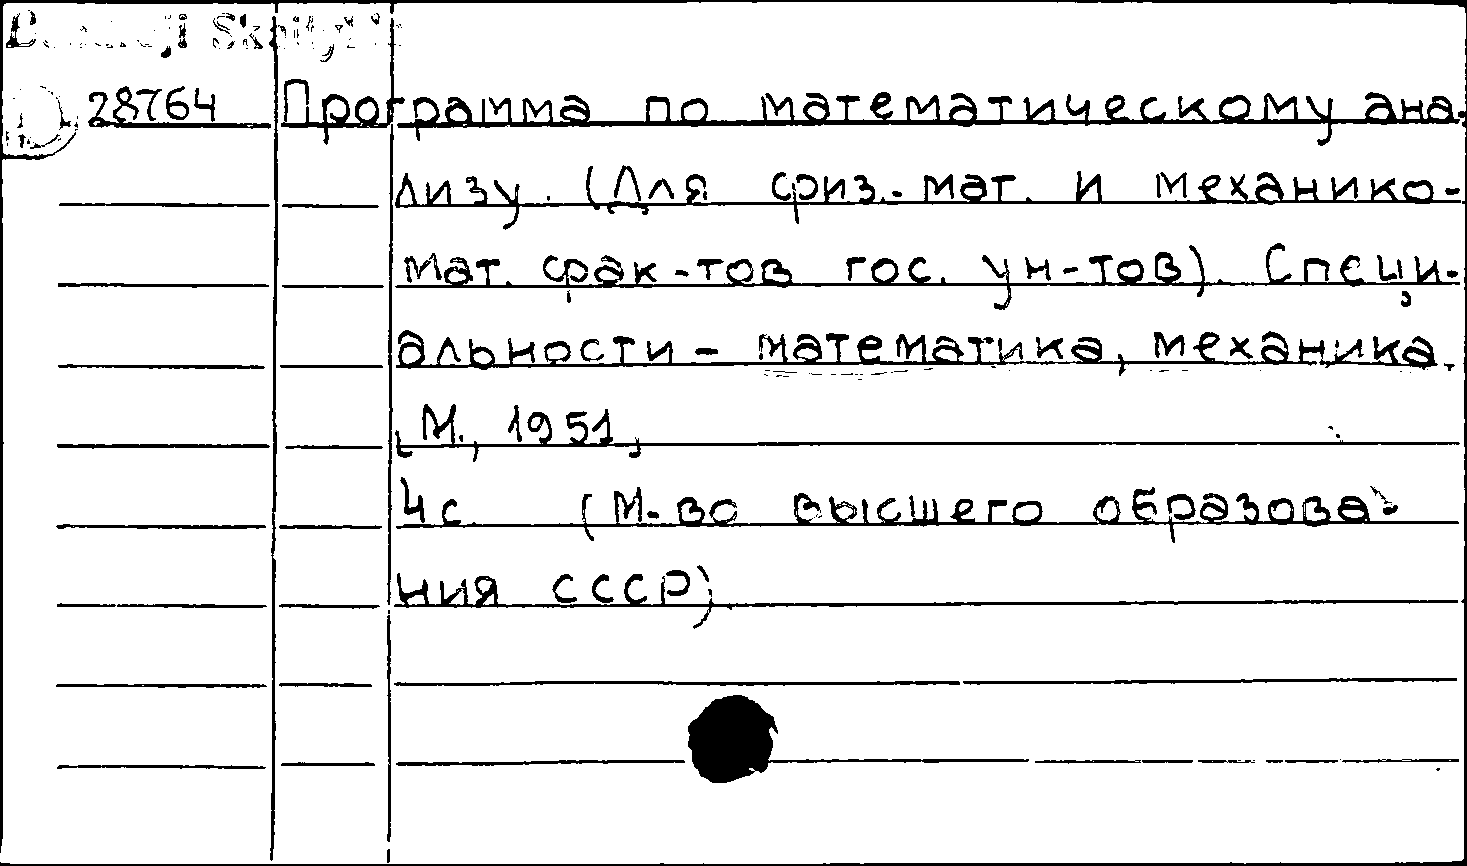 28764 Программа по математическому ана-
лизу. (Для физ.-мат. и механико-
мат. фак-тов гос. ун-тов). Специ-
альности - математика, механика.
[М., 1951]
4 с. (М-во высшего образова-
ния СССР).